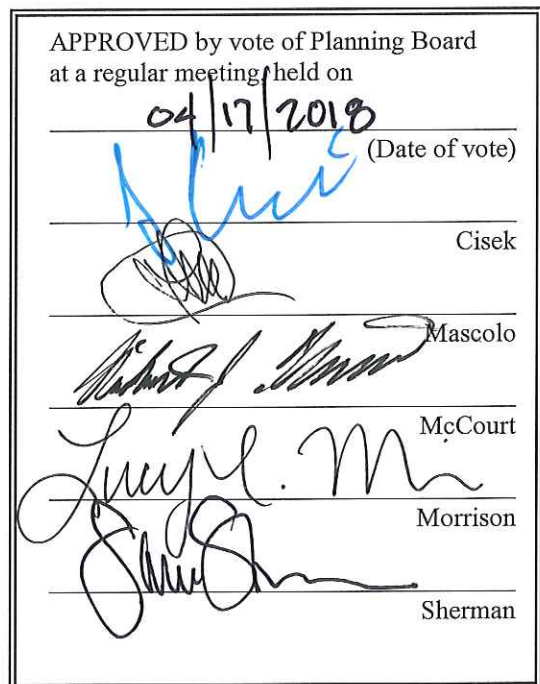 APPROVED by vote of Planning Board
at a regular meeting, held on
04/17/2018
(Date of vote)
Cisek
Mascolo
McCourt
Lucy C. M
Morrison
Sherman